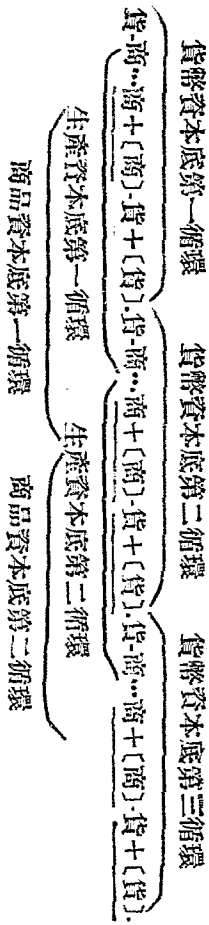 貨幣資本底第一循環 貨幣資本底第二循環 貨幣資本底第三循環
貨-商…商+〔商〕-貨+〔貨〕.貨-商…商+〔商〕-貨+〔貨〕.貨-商…商+〔商〕-貨+〔貨〕.
生產資本底第一循環 生產資本底第二循環
商品資本底第一循環 商品資本底第二循環